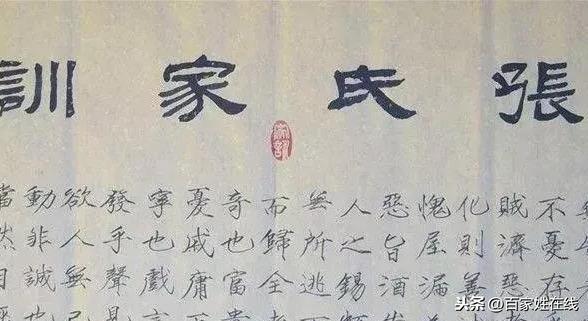 張氏家訓
家訓
不憂存
賊濟惡
化則善
愧屋漏
惡旨酒
人之錫
無所逃
而歸全
奇也富
憂戚庸
寧也戲言
發乎聲見
欲人無己
動非誠也
當然自
头条 @百家姓在线